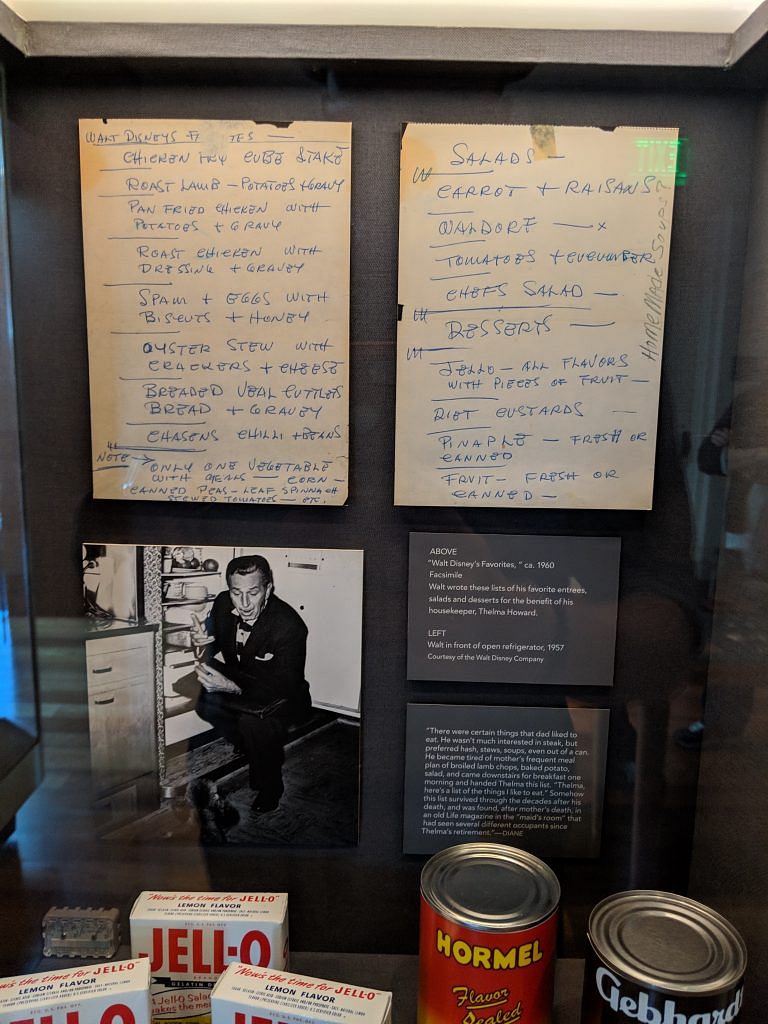 WALT DISNEYS F TES —
CHICKEN FRY CUBE STAKE
ROAST LAMB — POTATOES + GRAVY
PAN FRIED CHICKEN WITH
POTATOES + GRAVY
ROAST CHICKEN WITH
DRESSING + GRAVEY
SPAM + EGGS WITH
BISCUTS + HONEY
OYSTER STEW WITH
CRACKERS + CHEESE
BREADED VEAL CUTTLES
BREAD + GRAVEY
CHASENS CHILLI + BEANS
NOTE → ONLY ONE VEGETABLE
WITH MEALS — CORN —
CANNED PEAS — LEAF SPINNACH
STEWED TOMATOES — ETC.
SALADS —
CARROT + RAISANS?
WALDORF — x
TOMATOES + CUCUMBER
CHEFS SALAD —
DESSERTS —
JELLO — ALL FLAVORS
WITH PIECES OF FRUIT —
DIET CUSTARDS —
PINAPLE — FRESH OR
CANNED
FRUIT — FRESH OR
CANNED —
HomeMade Soups?
ABOVE
"Walt Disney's Favorites, " ca. 1960
Facsimile
Walt wrote these lists of his favorite entrees,
salads and desserts for the benefit of his
housekeeper, Thelma Howard.
LEFT
Walt in front of open refrigerator, 1957
Courtesy of the Walt Disney Company
"There were certain things that dad liked to
eat. He wasn't much interested in steak, but
preferred hash, stews, soups, even out of a can.
He became tired of mother's frequent meal
plan of broiled lamb chops, baked potato,
salad, and came downstairs for breakfast one
morning and handed Thelma this list. "Thelma,
here's a list of the things I like to eat." Somehow
this list survived through the decades after his
death, and was found, after mother's death, in
an old Life magazine in the "maid's room" that
had seen several different occupants since
Thelma's retirement."—DIANE
"Now's the time for JELL-O"
LEMON FLAVOR
JELL-O
GELATIN
"Now's the time for JELL-O"
LEMON FLAVOR
"Now's the time for JELL-O"
LEMON FLAVOR
HORMEL
Flavor
Sealed
Gebhard